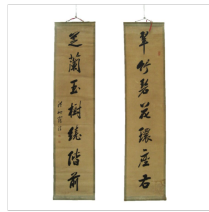 翠竹碧花環座右
芝蘭玉樹繞階前